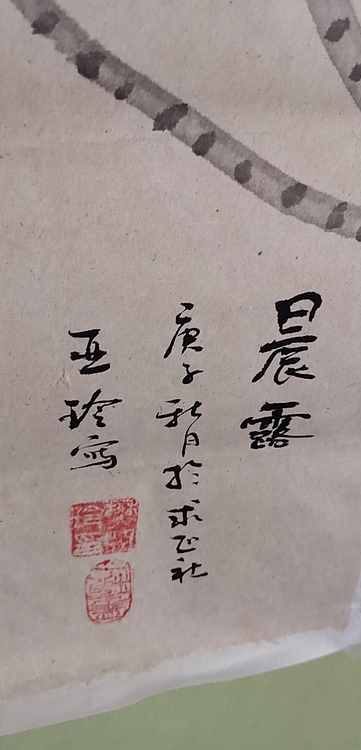 晨露
庚子秋月於求正社
亚玲寫